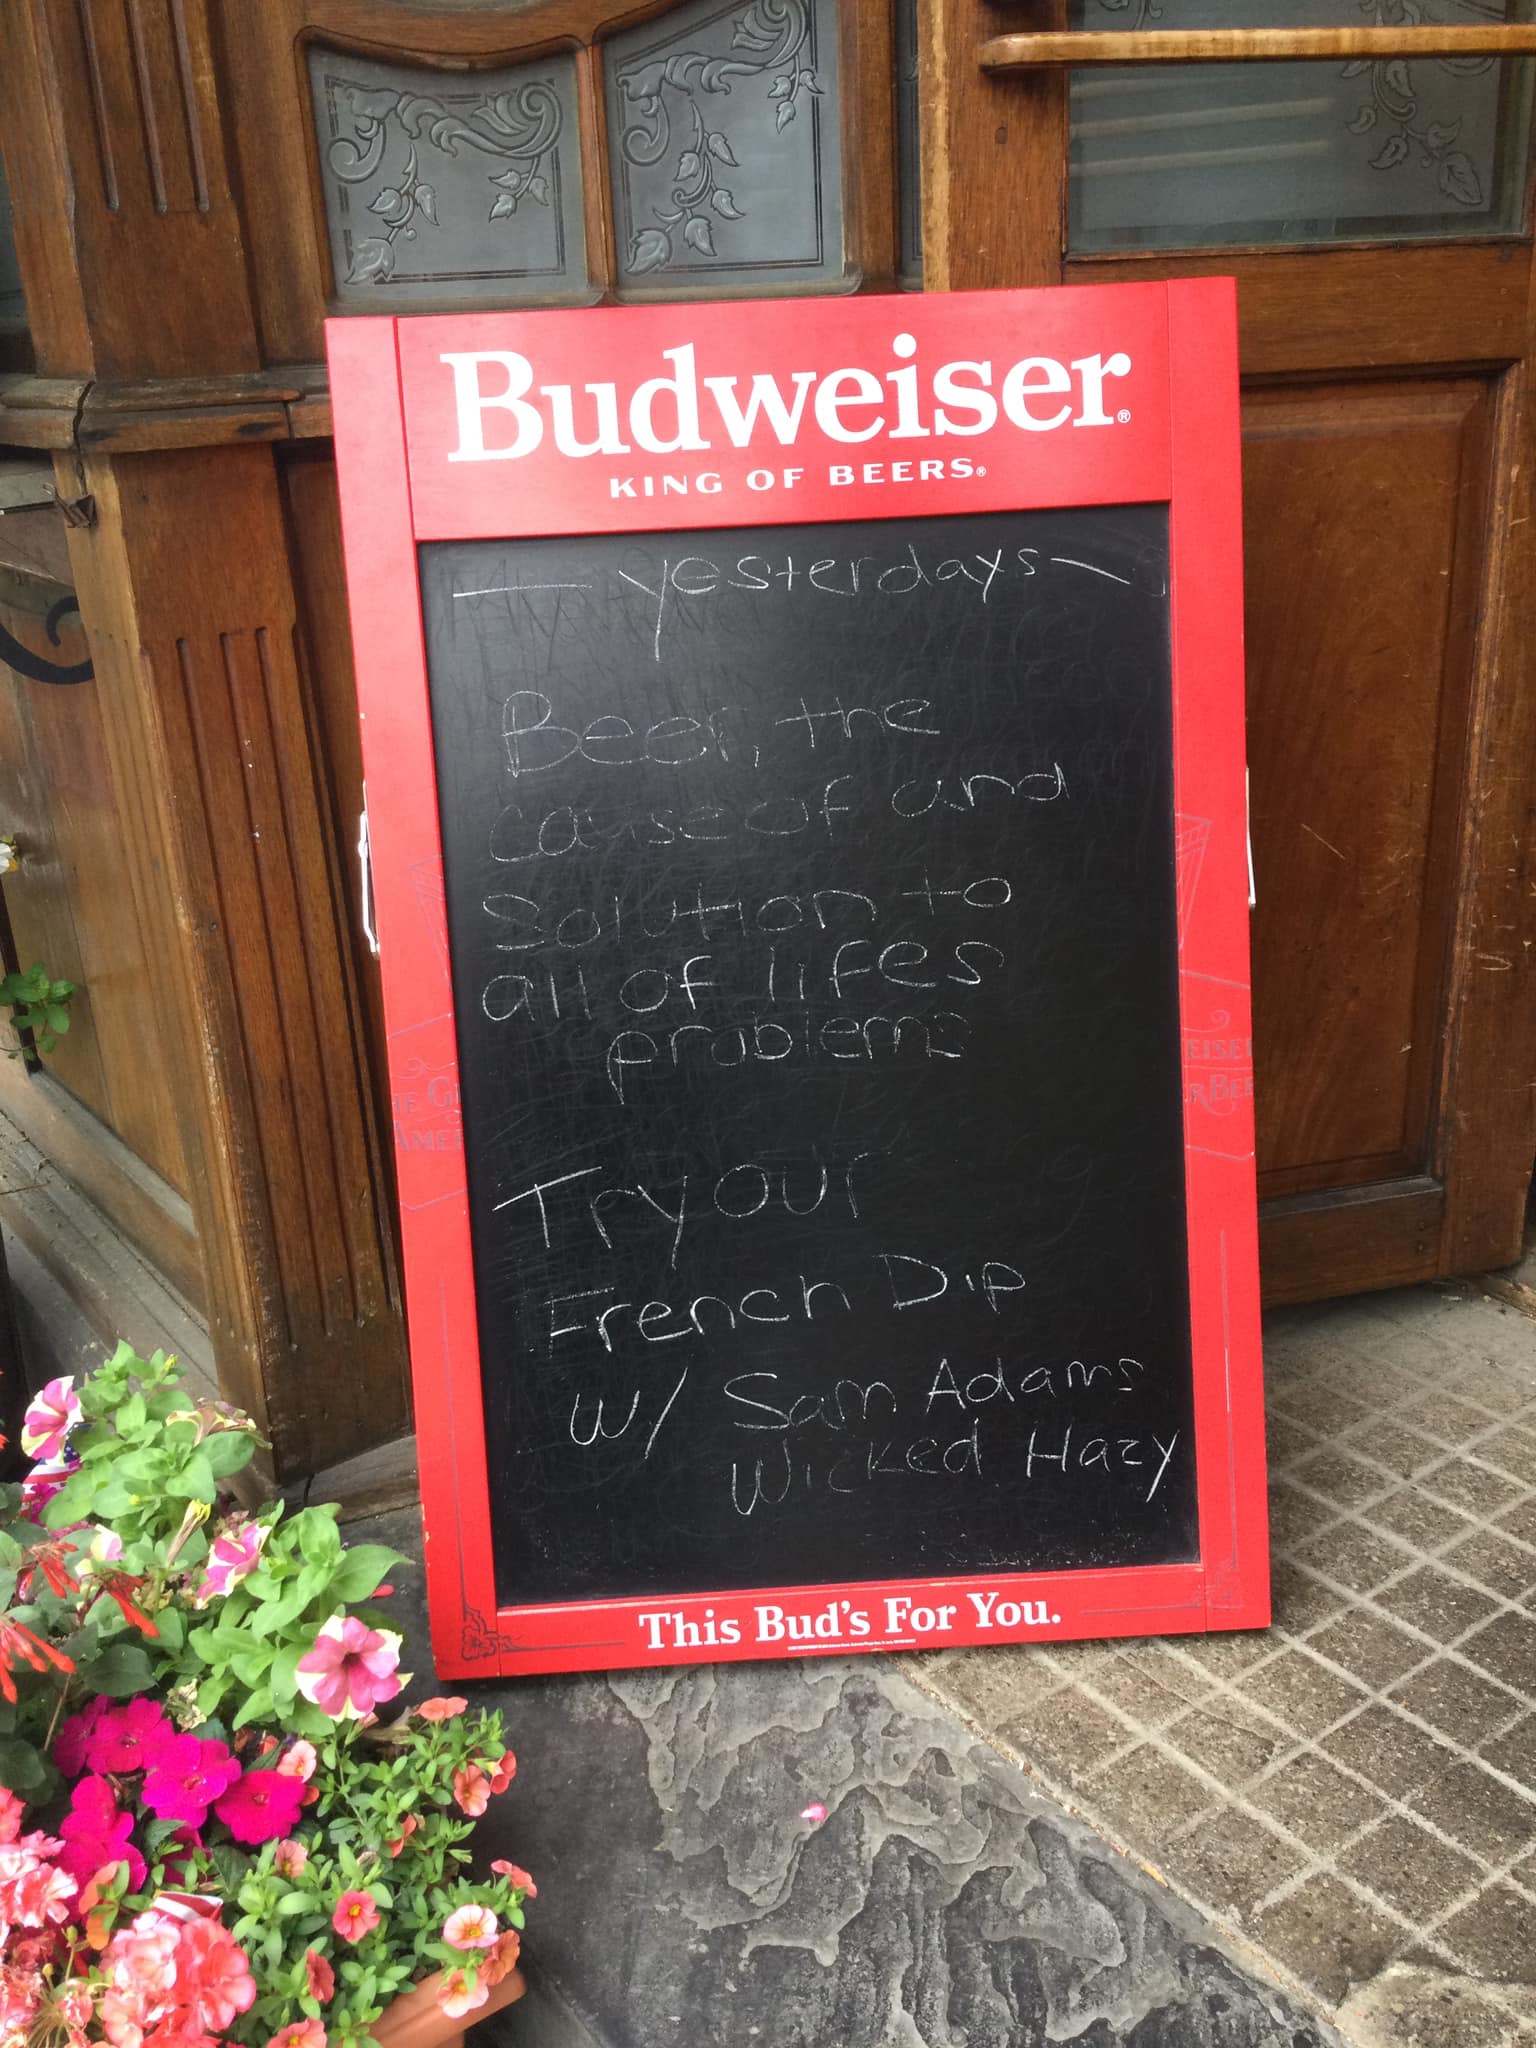 Budweiser®
KING OF BEERS®
— yesterdays —
Beer, the
cause of and
Solution to
all of lifes
problems
Try our
French Dip
w/ Sam Adams
Wicked Hazy
This Bud's For You.